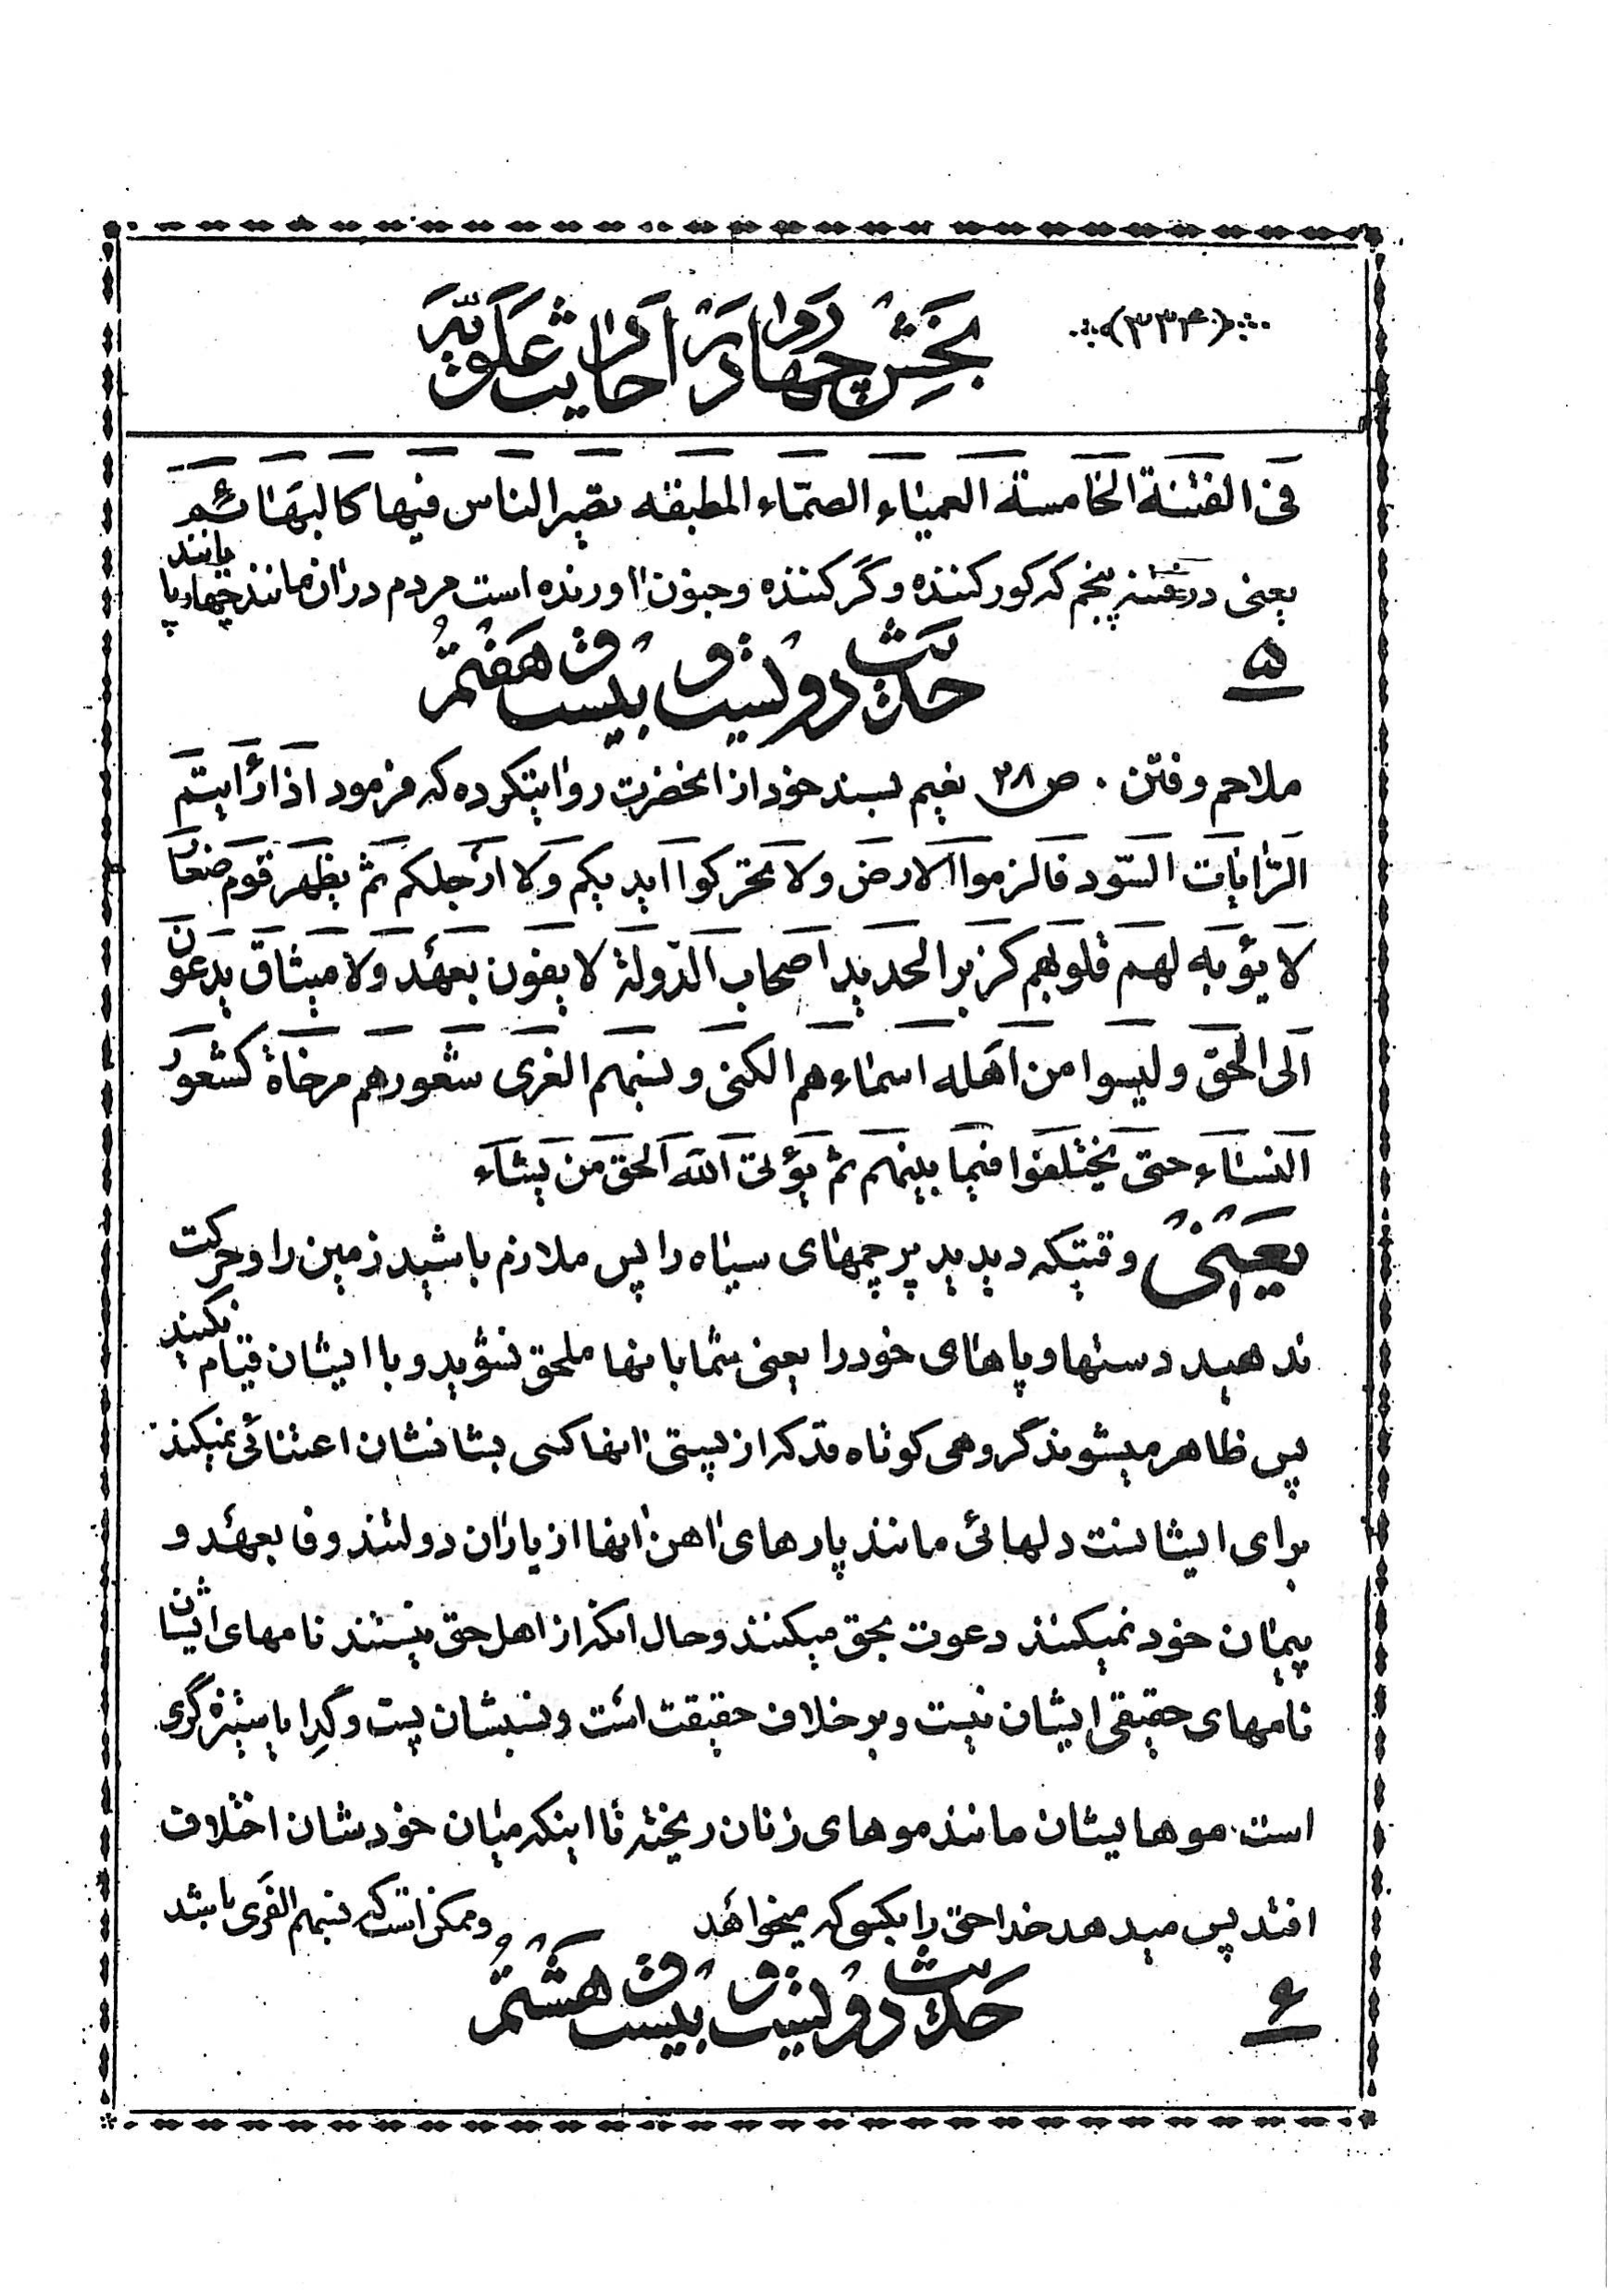 (۳۳۴)
بخش چهارم در احادیث علویه
فی الفتنة الخامسة العمیاء الصمّاء المطبقه یصیر الناس فیها کالبهائم
یعنی در فتنه پنجم که کور کننده و کر کننده و جنون اورنده است مردم در ان مانند چهارپایانند
۵
حدیث دویست و بیست و هفتم
ملاحم و فتن ٠ ص۲۸ نعیم بسند خود از انحضرت روایتکرده که فرمود اذا رأیتم
الرّایات السّود فالزموا الارض ولا تحرکوا ایدیکم ولا ارجلکم ثم یظهر قوم صغار
لا یؤبه لهم قلوبهم کزبر الحدید اصحاب الدّولة لا یفون بعهد ولا میثاق یدعون
الی الحق ولیسوا من اهله اسماءهم الکنی ونسبهم الغری شعورهم مرخاة کشعور
النساء حتی یختلفوا فیما بینهم ثم یؤتی الله الحق من یشاء
یعنی وقتیکه دیدید پرچمهای سیاه را پس ملازم باشید زمین را و حرکت
ندهید دستها و پاهای خود را یعنی شما بانها ملحق نشوید و با ایشان قیام نکنید
پس ظاهر میشوند گروهی کوتاه قد که از پستی انها کسی بشانشان اعتنائی نمیکند
برای ایشانست دلهائی مانند پارهای اهن انها از یاران دولتند وفا بعهد و
پیمان خود نمیکنند دعوت بحق میکنند و حال انکه از اهل حق نیستند نامهای ایشان
نامهای حقیقی ایشان نیست و بر خلاف حقیقت است و نسبشان پست و گدا یا نیزه گری
است موهایشان مانند موهای زنان ریخته تا اینکه میان خودشان اختلاف
افتد پس میدهد خدا حق را بکسی که میخواهد و ممکن است که نسبهم القری باشد
۶
حدیث دویست و بیست و هشتم